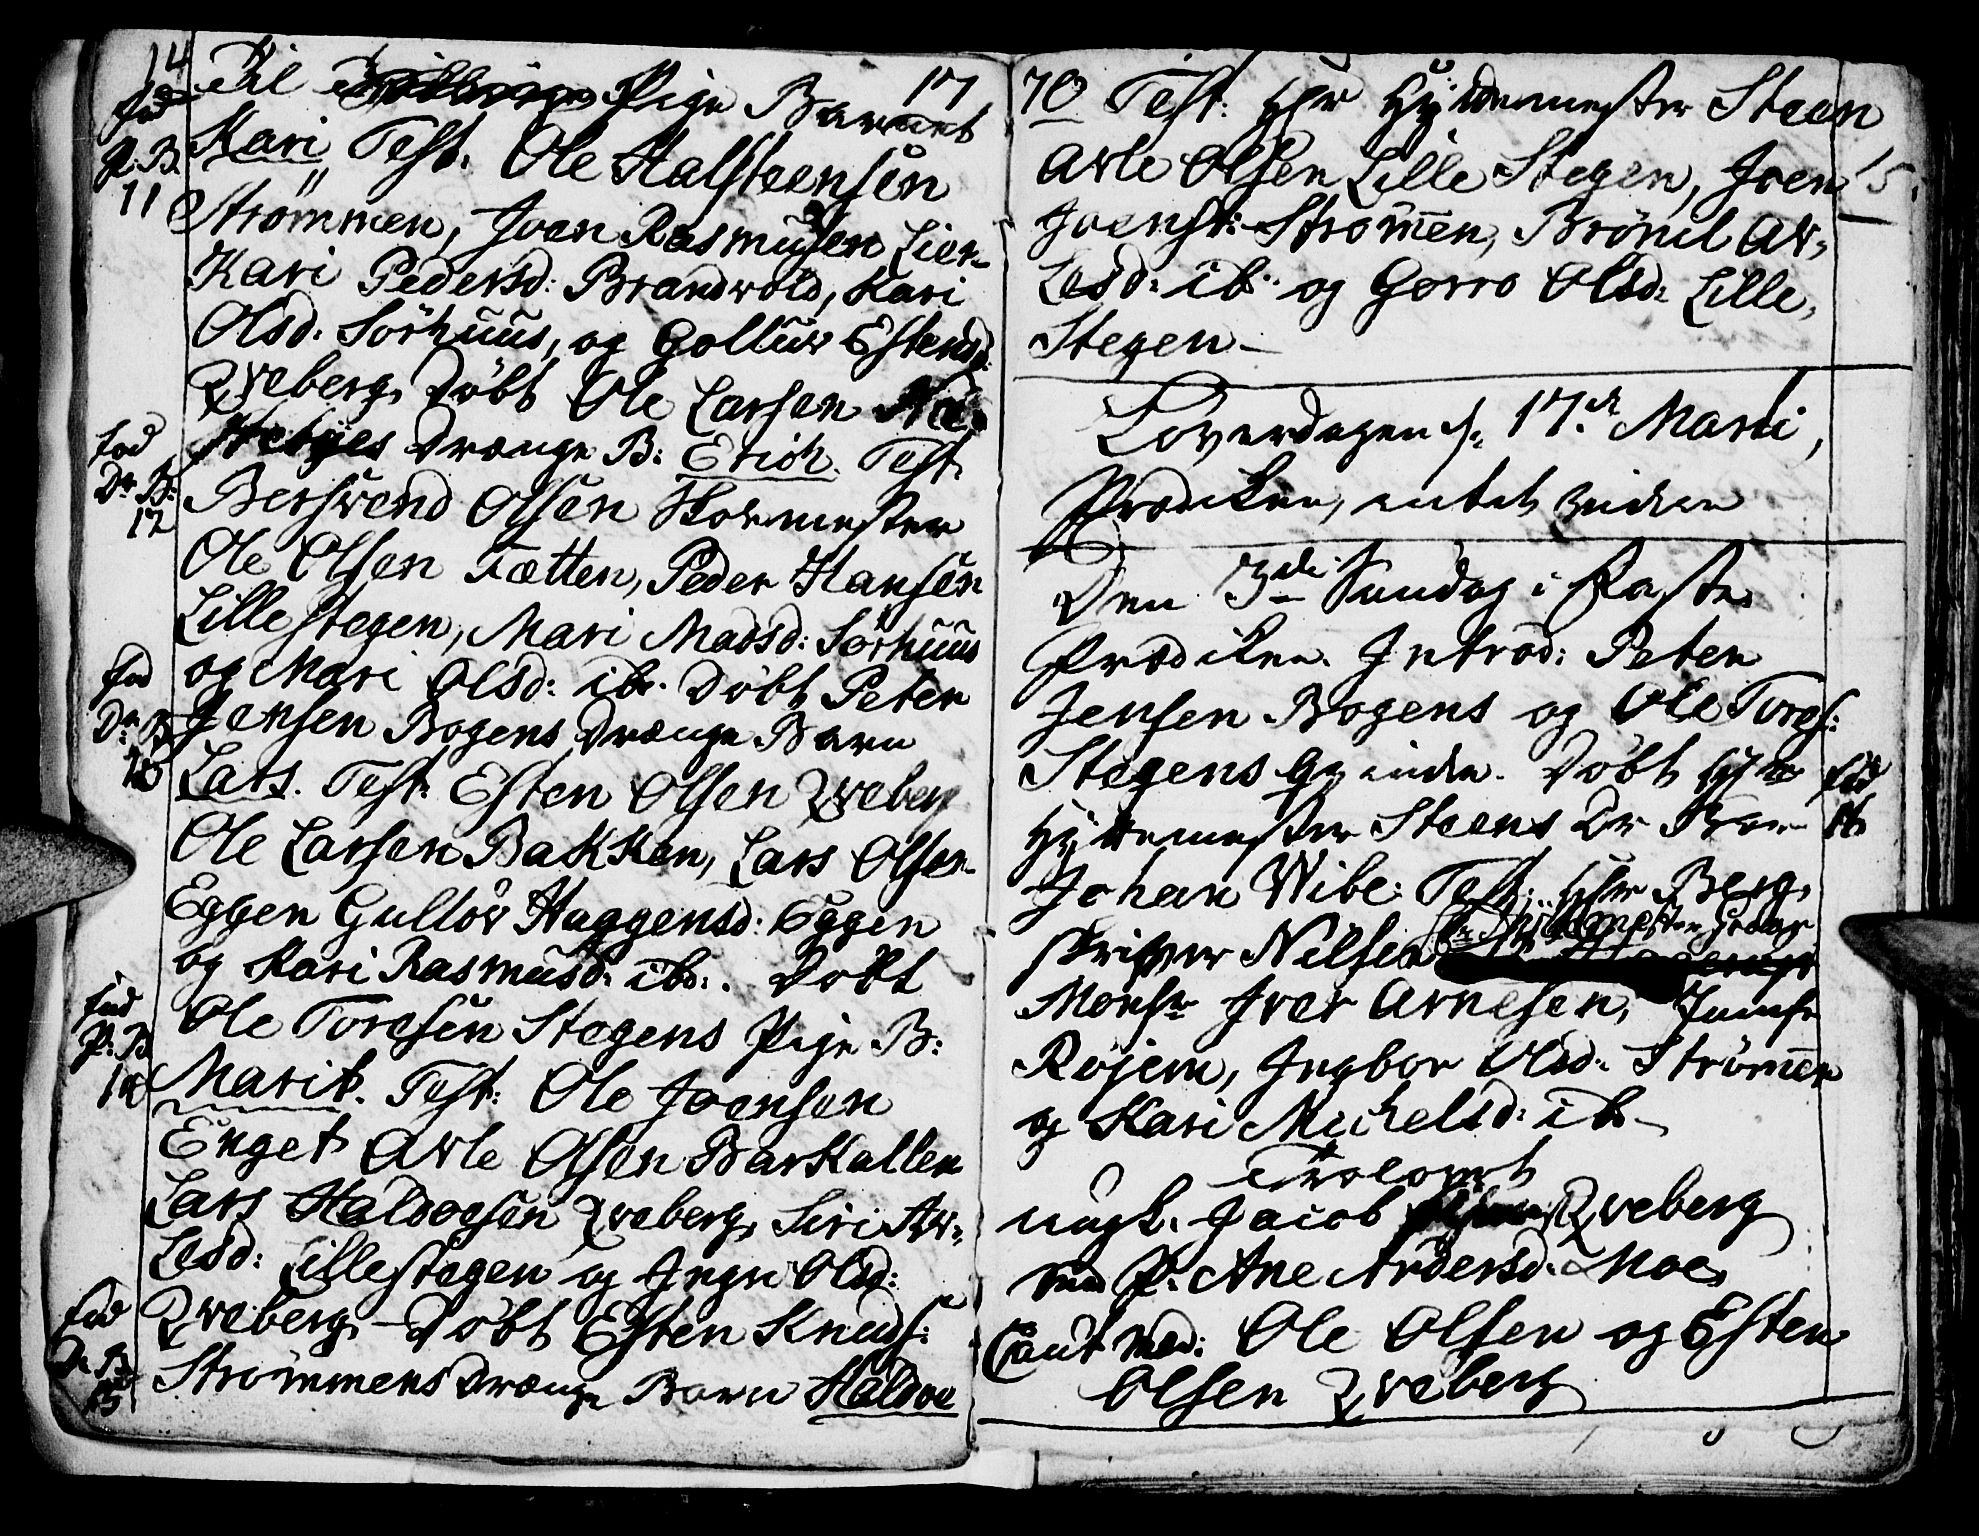 14
17
Til Pige Barnet
fød
P. B.
11
Kari Test: Ole Halsteensen
Strømmen, Joen Rasmusen Lien
Kari Pedersd: Brandvold, Kari
Olsd: Sørhuus, og Gollur Estensd:
Qveberg, Døbt Ole Larsen
fød
Dr B:
12
Drænge B: Erich. Test.
Bersvend Olsen
Ole Olsen Tætten, Peder Hansen
Lillestegen, Mari Madsd: Sørhuus
og Mari Olsd: ib. Døbt Peter
fød
Dr: B
Jensen Bogens Drænge Barn
Lars. Test: Esten Olsen Qveberg
Ole Larsen Bakken, Lars Olsen
Eggen Gulløv Haggensd: Eggen
og Kari Rasmusd: ib:. Døbt
fød
P: B
Ole Toresen Stegens Pige B:
Marit. Test: Ole Joensen
Enget Arle Olsen Barkallen
Lars Haldoesen Qveberg, Siri Ar-
lesd: Lillestegen og Ingri Olsd:
fød
D. B
15
Qveberg - Døbt Esten Knuds:
Strømmens Drænge Barn Haldoe
70 Test: Hytte mester Steen
15.
Arle Olsen Lille Stegen, Joen
Joens: Strømen, Brønil Ar-
lesd: ib: og Gorro Olsd: Lille,
Stegen -
Løverdagen d: 17de Marti,
Prædiken, intet videre
Den 3die Sundag i Faste
Prædiken. Introd: Peter
Jensen Bogens og Ole Tores:
Stegens Qvinder. Døbt Hr
fød
Hyttemester Steens Dr Barn
Johan Wibe: Test: Hr Berg-
skriver Nilsen
Monsr Iver Arnesen, Jumfr
Røjem, Ingbor Olsd: Strømen
og Kari Michelsd: ib -
Trolovet
ungk. Jacob Qveberg
med P. Ane Andersd: Moe
Caut med: Ole Olsen og Esten
Olsen Qveberg